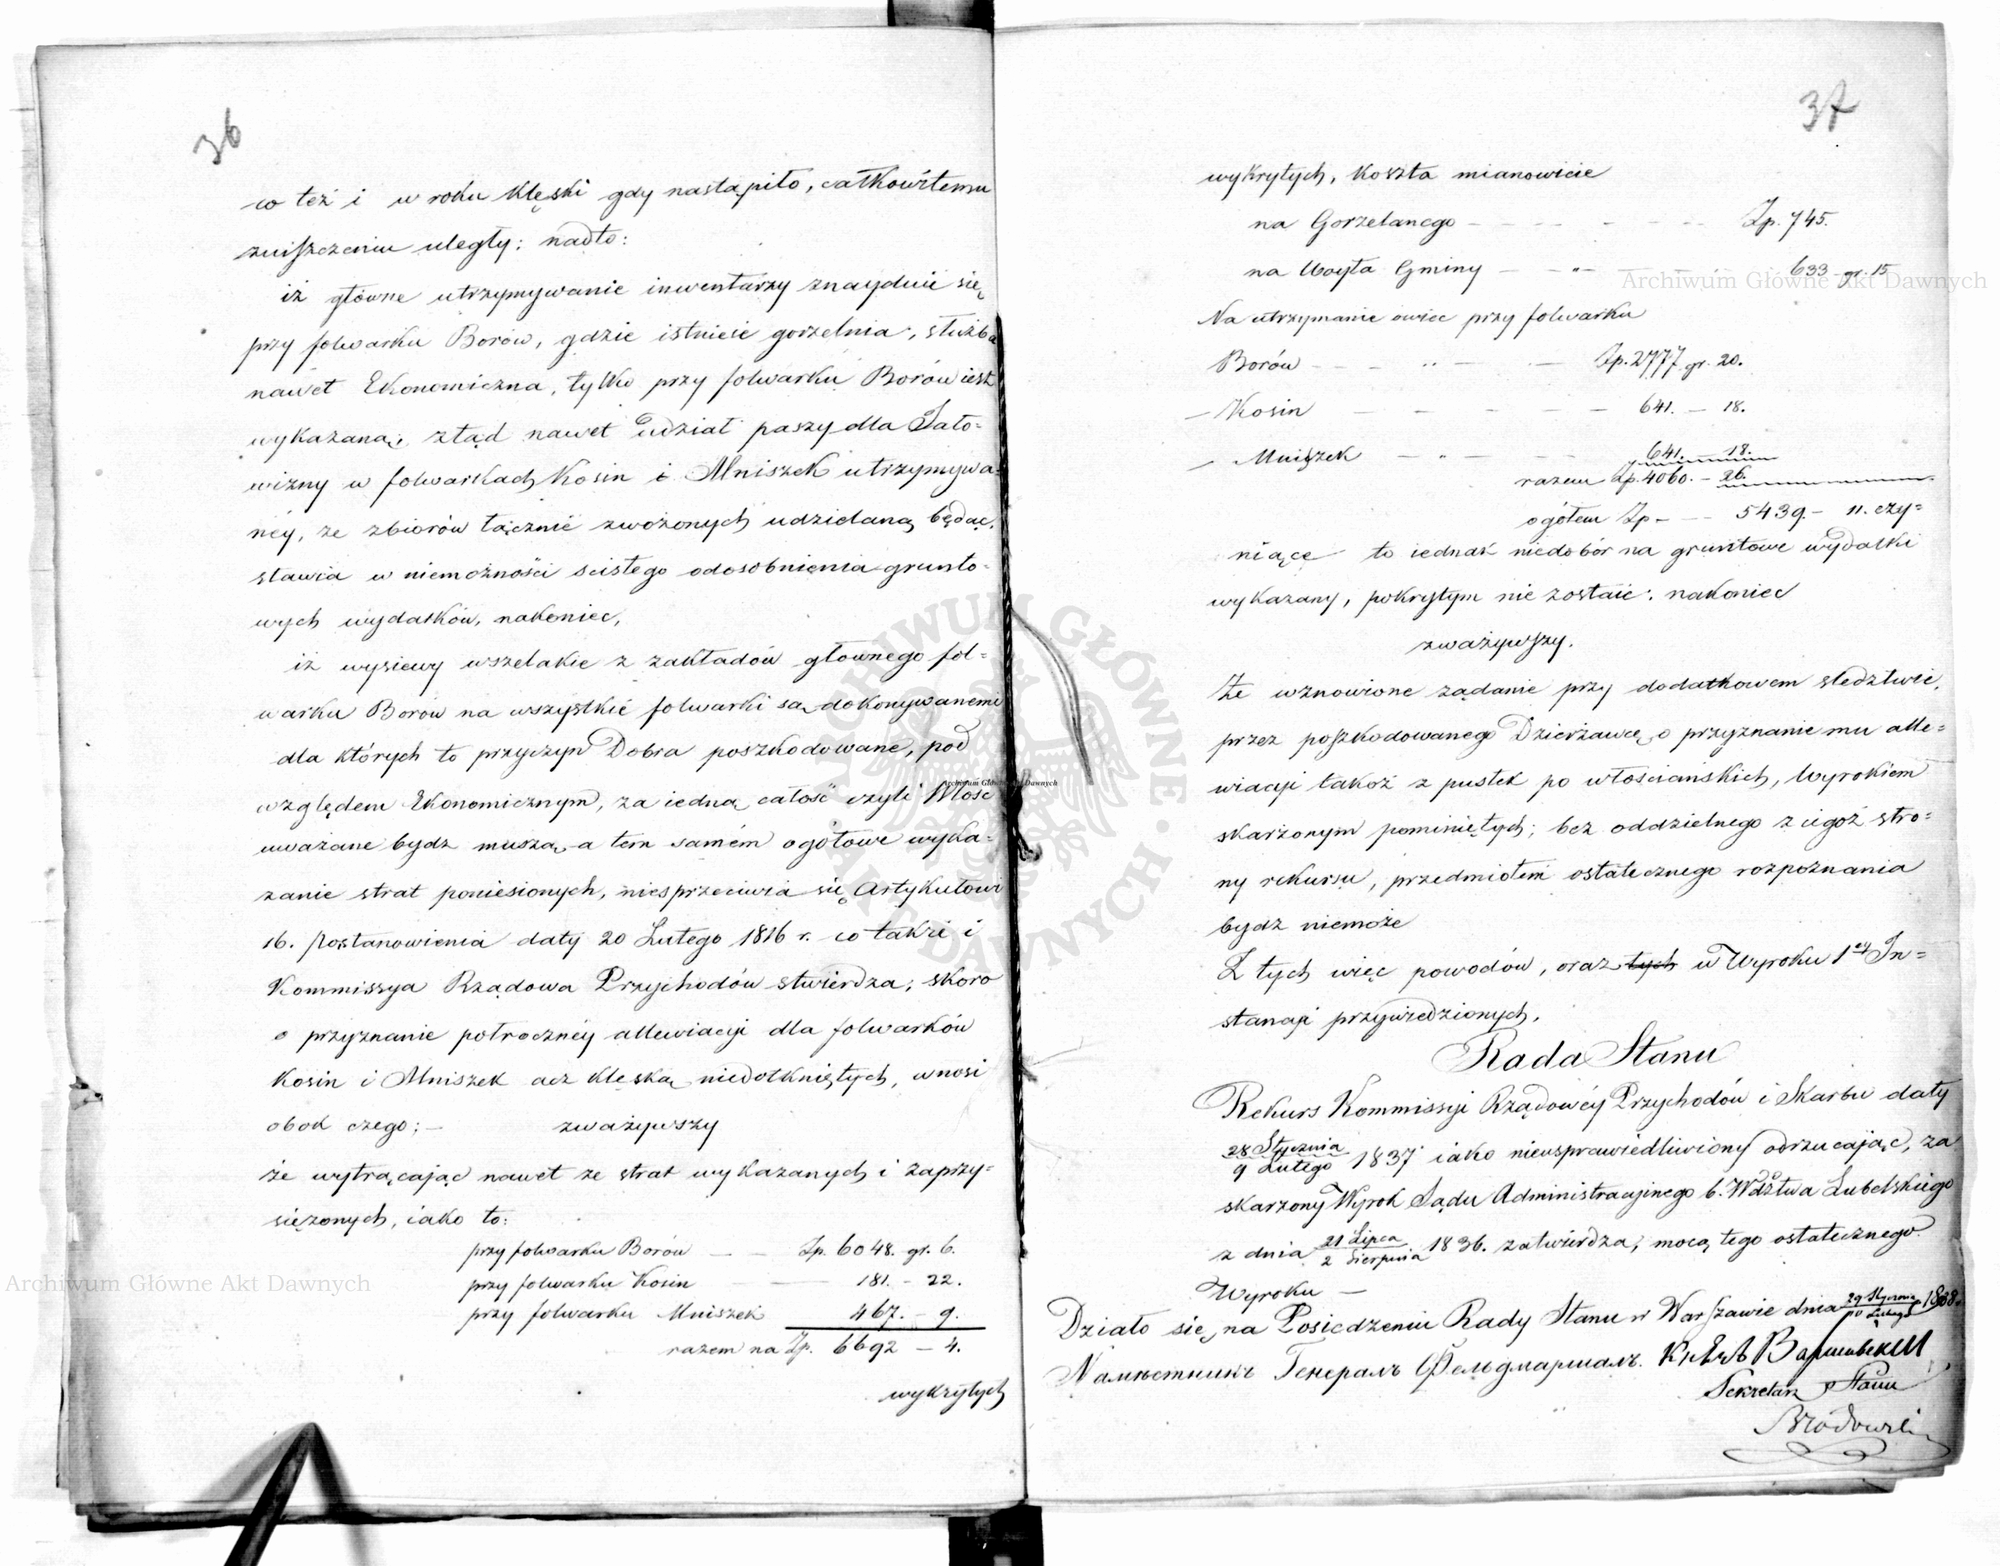 36
co też i w roku klęski gdy nastąpiło, całkowitemu
zniszczeniu uległy; nadto:
iż główne utrzymywanie inwentarzy znayduie się
przy folwarku Borów, gdzie istnieie gorzelnia, służba
nawet Ekonomiczna, tylko przy folwarku Borów iest
wykazaną; ztąd nawet udział paszy dla Jało-
wizny w folwarkach Kosin i Mniszek utrzymywa-
néy, ze zbiorów łącznie zwożonych udzielaną będąc,
stawia w niemożności scisłego odosobnienia grunto-
wych wydatków, nakoniec,
iż wysiewy wszelakie z zakładów głownego fol-
warku Borow na wszystkie folwarki są dokonywanemi
dla których to przyczyn Dobra poszkodowane, pod
względem Ekonomicznym, za iedną całość czyli Włość
uważane bydz muszą, a tem samém ogółowe wyka-
zanie strat poniesionych, niesprzeciwia się Artykułowi
16. Postanowienia daty 20 Lutego 1816 r. co także i
Kommissya Rządowa Przychodów stwierdza; skoro
o przyznanie półrocznéy allewiacyi dla folwarków
Kosin i Mniszek acz klęską niedotkniętych, wnosi
obok czego; — zważywszy
że wytrącając nawet ze strat wykazanych i zaprzy-
siężonych, iako to:
przy folwarku Borów — — Zp. 6048. gr. 6.
przy folwarku Kosin — — 181. - 22.
przy folwarku Mniszek 467. - 9.
razem na Zp. 6692 - 4.
wykrytych
37
wykrytych, koszta mianowicie
na Gorzelanego — — — Zp. 745.
na Woyta Gminy — „ — — 633 gr. 15
Na utrzymanie owiec przy folwarku
Borów — — — Zp. 2777 gr. 20.
— Kosin — — — 641. — 18.
— Mniszek — „ — — 641. — 18.
razem Zp. 4060. - 26.
ogółem Zp — — 5439. - 11. czy-
niące to iednak niedobór na gruntowe wydatki
wykazany, pokrytym nie zostaie; nakoniec
zważywszy.
Że wznowione żądanie przy dodatkowem sledztwie,
przez poszkodowanego Dzierżawcę o przyznanie mu alle-
wiacyi takoż z pustek po włościańskich, Wyrokiem
skarżonym pominiętych; bez oddzielnego z iegoż stro-
ny rekursu, przedmiotem ostatecznego rozpoznania
bydz niemoże
Z tych więc powodów, oraz tych w Wyroku 1ey In-
stancyi przywiedzionych,
Rada Stanu
Rekurs Kommissyi Rządowéy Przychodów i Skarbu daty
28 Stycznia
9 Lutego 1837 iako nieusprawiedliwiony odrzucając, za
skarżony Wyrok Sądu Administracyinego b. Wdztwa Lubelskiego
z dnia 21 Lipca
2 Sierpnia 1836. zatwierdza; mocą tego ostatecznego
Wyroku —
Działo się, na Posiedzeniu Rady Stanu w Warszawie dnia 29 Stycznia
10 Lutego 1838
Намѣстникъ Генералъ Фельдмаршалъ. Князь Варшавскій
Sekretarz Stanu
Archiwum Główne Akt Dawnych
Archiwum Główne Akt Dawnych
Archiwum Główne Akt Dawnych
ARCHIWUM GŁÓWNE AKT DAWNYCH